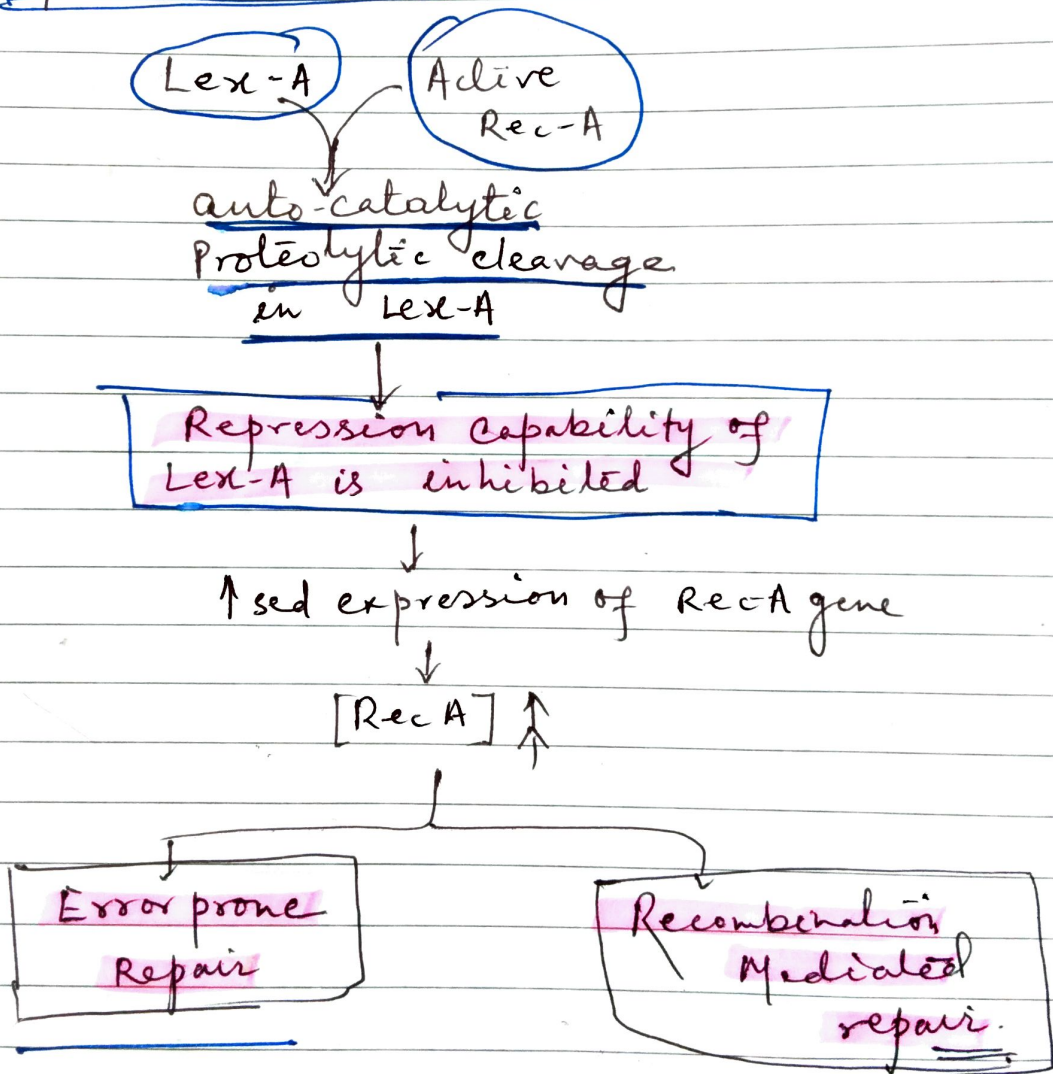 Lex-A
Active
Rec-A
auto-catalytic
Proteolytic cleavage
in Lex-A
Repression capability of
Lex-A is inhibited
↑sed expression of Rec-A gene
[Rec A] ↑↑
Error prone
Repair
Recombination
Mediated
repair.